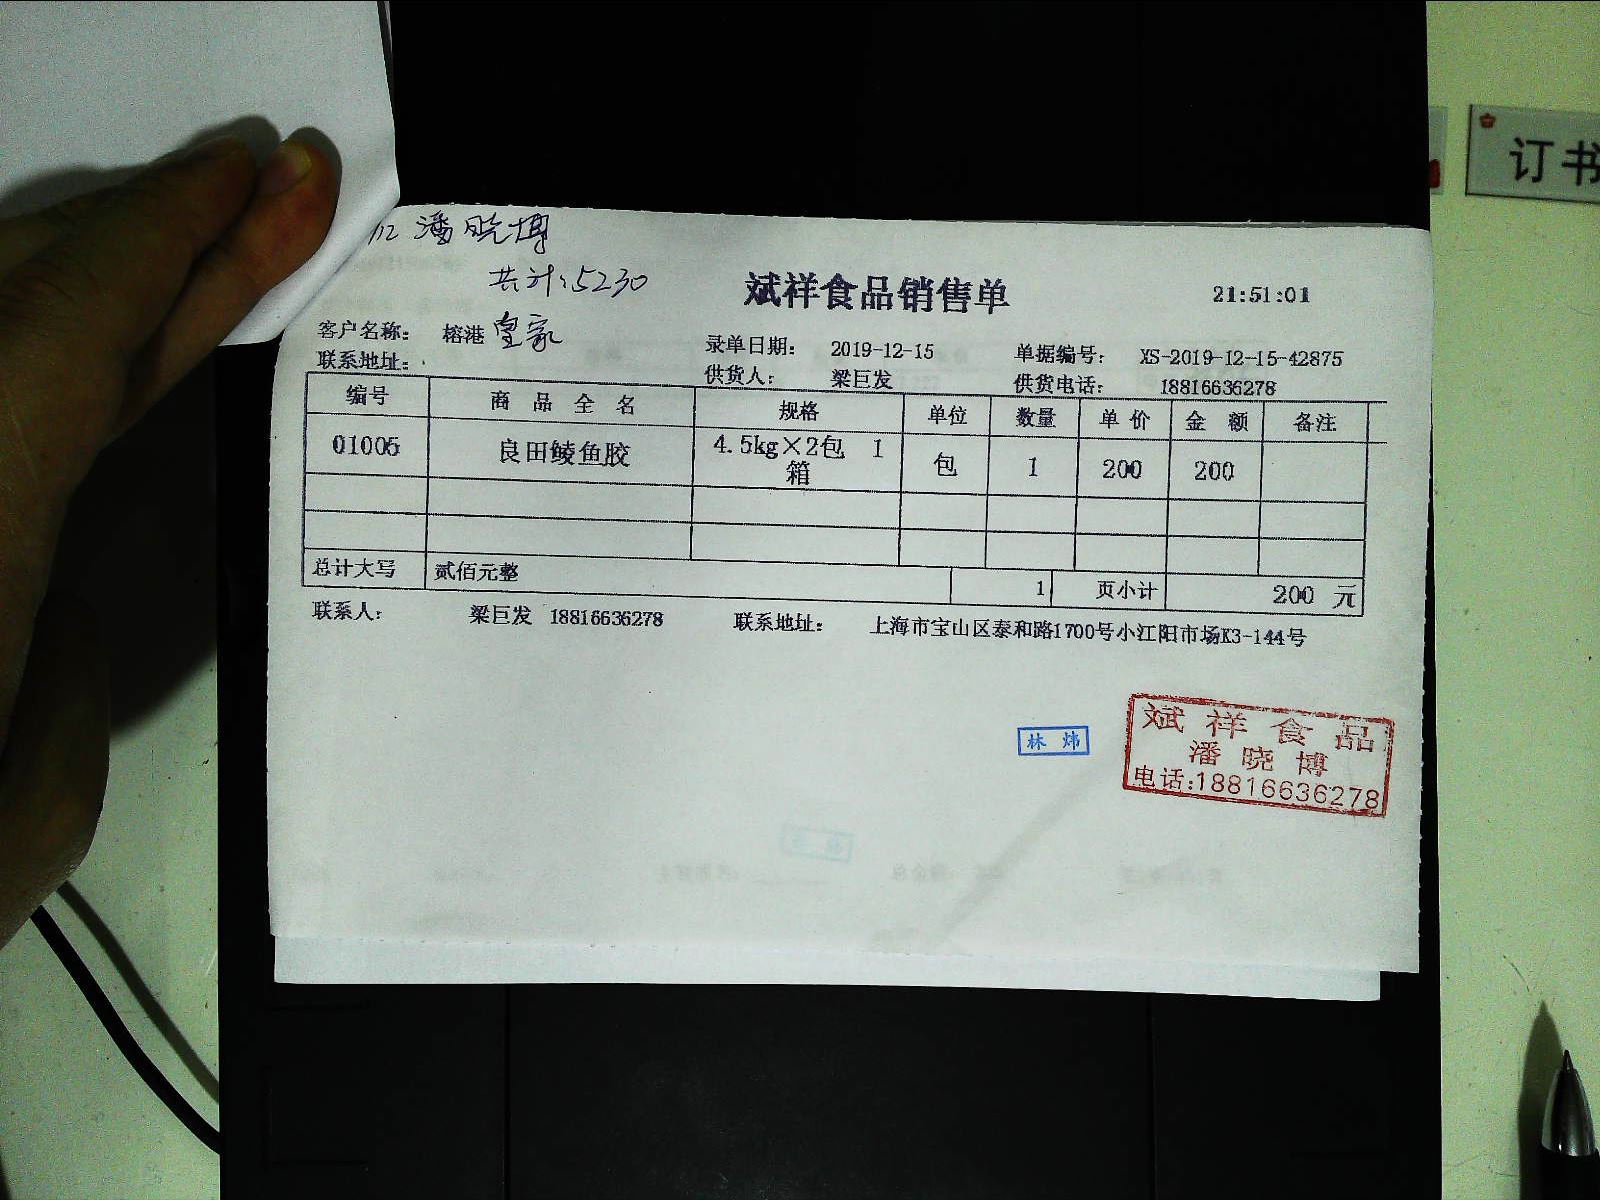 订书
潘晓博
共计:5230
斌祥食品销售单
21:51:01
客户名称: 榕港 皇家
录单日期: 2019-12-15
单据编号: XS-2019-12-15-42875
联系地址:
供货人: 梁巨发
供货电话: 18816636278
编号 商品全名 规格 单位 数量 单价 金额 备注
01005 良田鲮鱼胶 4.5kg×2包 1箱 包 1 200 200
总计大写 贰佰元整 1 页小计 200 元
联系人: 梁巨发 18816636278 联系地址: 上海市宝山区泰和路1700号小江阳市场K3-144号
林炜
斌祥食品
潘晓博
电话:18816636278